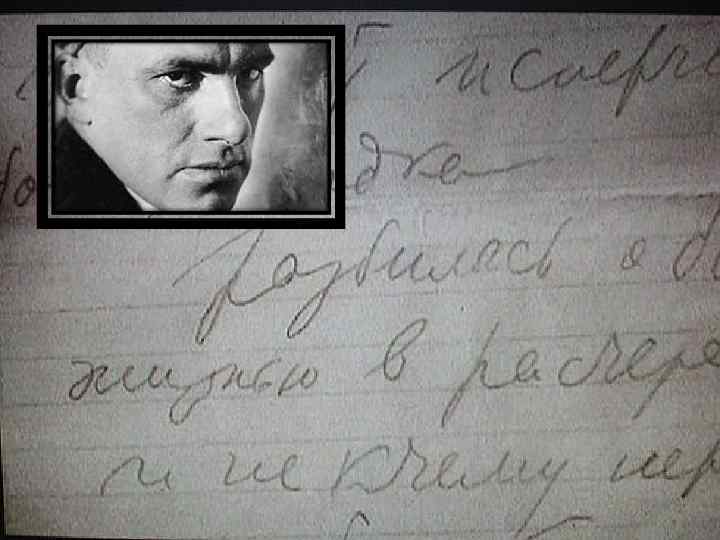 т исперче
дка
разбилась о бы
жизнью в расчете
и не к чему пер